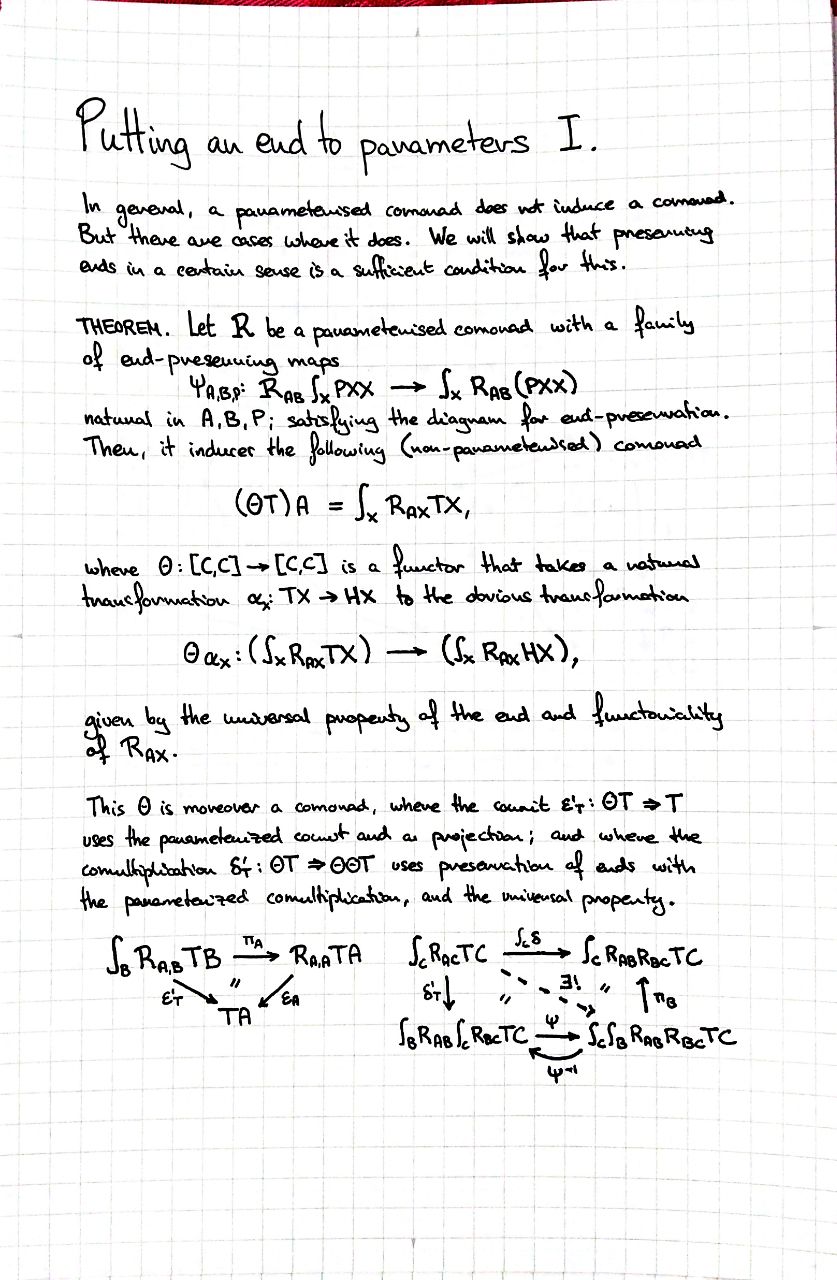 Putting an end to parameters I.
In general, a parameterised comonad does not induce a comonad.
But there are cases where it does. We will show that preserving
ends in a certain sense is a sufficient condition for this.
THEOREM. Let R be a parameterised comonad with a family
of end-preserving maps
ψA,B,P: RAB ∫x PXX → ∫x RAB(PXX)
natural in A, B, P; satisfying the diagram for end-preservation.
Then, it induces the following (non-parameterised) comonad
(ΘT)A = ∫x RAXTX,
where Θ: [C,C] → [C,C] is a functor that takes a natural
transformation αx: TX → HX to the obvious transformation
Θαx: (∫x RAXTX) → (∫x RAXHX),
given by the universal property of the end and functoriality
of RAX.
This Θ is moreover a comonad, where the counit ε'T: ΘT ⇒ T
uses the parameterized counit and a projection; and where the
comultiplication δ'T: ΘT ⇒ ΘΘT uses preservation of ends with
the parameterized comultiplication, and the universal property.
∫B RA,B TB πA → RA,A TA
ε'T " εA
TA
∫C RAC TC ∫C δ → ∫C RAB RBC TC
δ'T ↓ " ∃! " ↑ πB
∫B RAB ∫C RBC TC ψ → ∫C ∫B RAB RBC TC
ψ-1